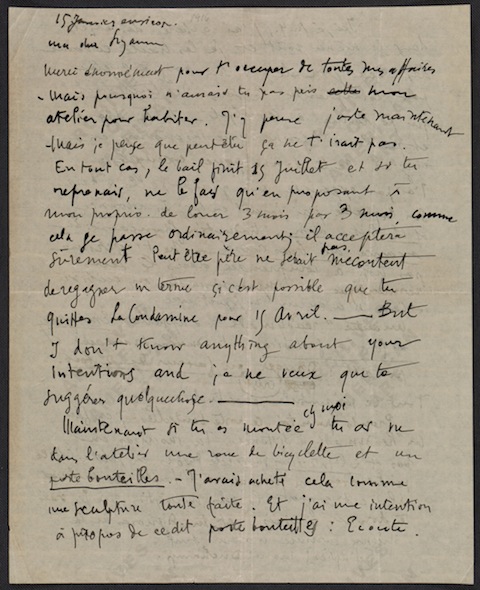 15 Janvier environ.
ma chère Suzanne
Merci énormément pour t'occuper de toutes mes affaires
- Mais pourquoi n'aurais tu pas pris mon
atelier pour habiter. J'y pense juste maintenant
- Mais je pense que peut-être ça ne t'irait pas.
En tout cas, le bail finit 15 Juillet et si tu
reprenais, ne le fais qu'en proposant à
mon proprio. de louer 3 mois par 3 mois, comme
cela se passe ordinairement; il acceptera
sûrement - Peut être père ne serait pas mécontent
de regagner un terme si c'est possible que tu
quittes La Condamine pour 15 Avril. — But
I don't know anything about your
intentions and je ne veux que te
suggérer quelquechose. —
Maintenant si tu es montée ch moi tu as vu
dans l'atelier une roue de bicyclette et un
porte bouteilles. - J'avais acheté cela comme
une sculpture toute faite. Et j'ai une intention
à propos de ce dit porte bouteilles : Ecoute.